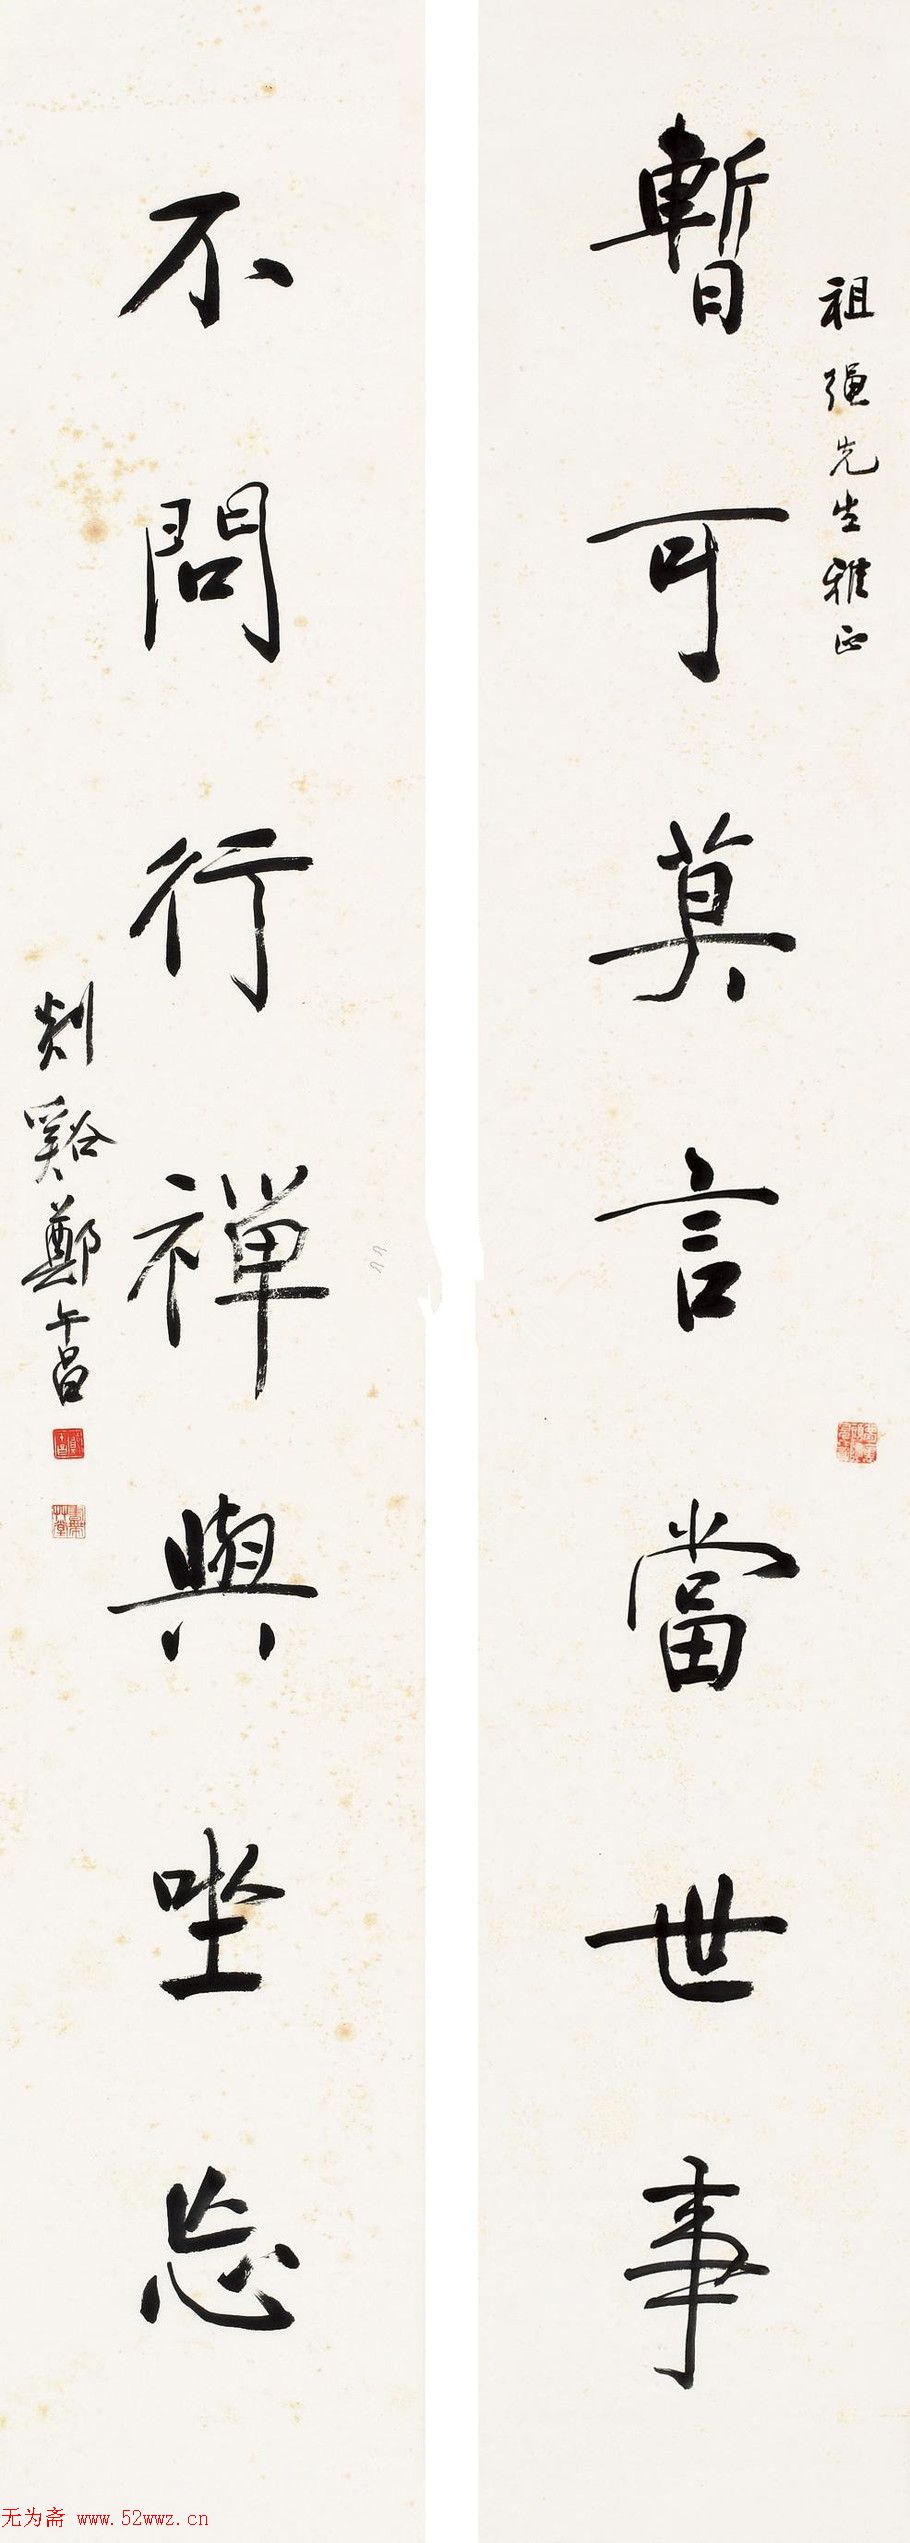 祖強先生雅正
暫可莫言當世事
不問行禪與坐忘
剡谿鄭午昌
无为斋 www.52wwz.cn